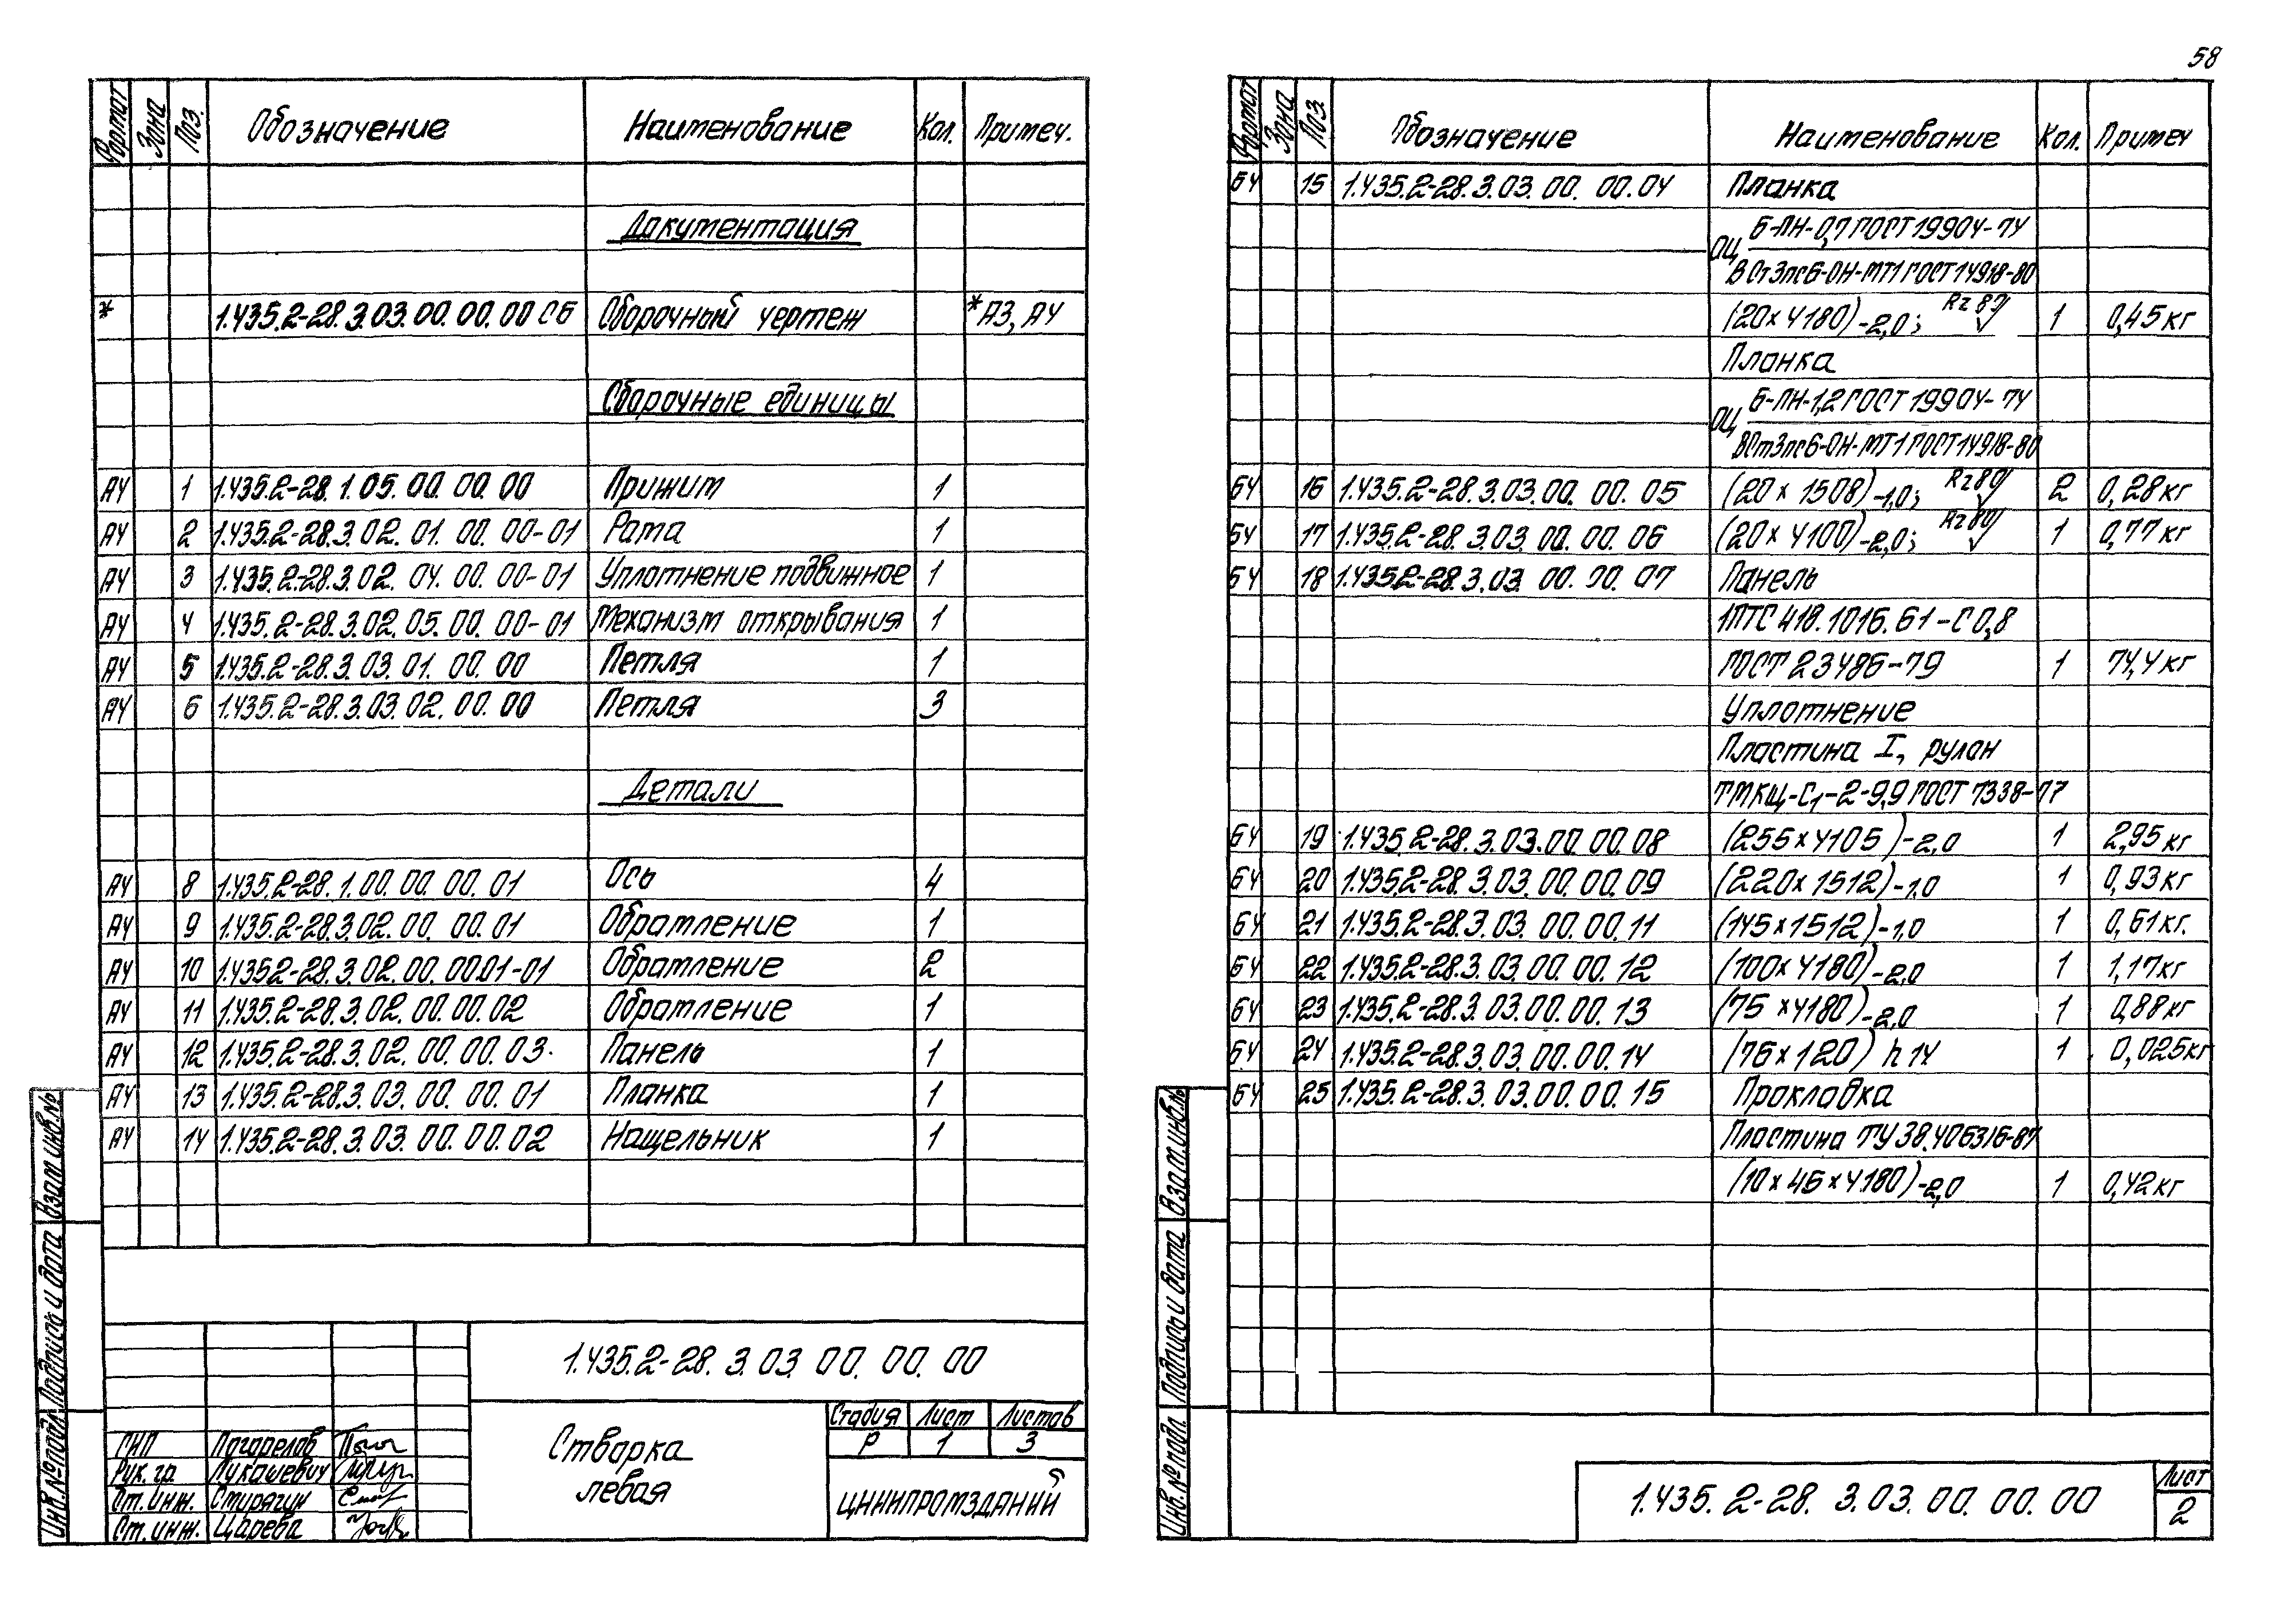 58
Формат Зона Поз. Обозначение Наименование Кол. Примеч.
Документация
* 1.435.2-28.3.03.00.00.00 СБ Сборочный чертеж *А3, А4
Сборочные единицы
А4 1 1.435.2-28.1.05.00.00.00 Прижим 1
А4 2 1.435.2-28.3.02.01.00.00-01 Рама 1
А4 3 1.435.2-28.3.02.04.00.00-01 Уплотнение подвижное 1
А4 4 1.435.2-28.3.02.05.00.00-01 Механизм открывания 1
А4 5 1.435.2-28.3.03.01.00.00 Петля 1
А4 6 1.435.2-28.3.03.02.00.00 Петля 3
Детали
А4 8 1.435.2-28.1.00.00.00.01 Ось 4
А4 9 1.435.2-28.3.02.00.00.01 Обрамление 1
А4 10 1.435.2-28.3.02.00.00.01-01 Обрамление 2
А4 11 1.435.2-28.3.02.00.00.02 Обрамление 1
А4 12 1.435.2-28.3.02.00.00.03 Панель 1
А4 13 1.435.2-28.3.03.00.00.01 Планка 1
А4 14 1.435.2-28.3.03.00.00.02 Нащельник 1
Взам инв.№
Подпись и дата
Инв.№подл.
1.435.2-28.3.03.00.00.00
Створка
левая
Стадия Лист Листов
Р 1 3
ЦНИИПРОМЗДАНИЙ
ГИП Погорелов
Рук. гр. Лукашевич
Ст. инж. Смирягин
Ст. инж. Царева
Формат Зона Поз. Обозначение Наименование Кол. Примеч
БЧ 15 1.435.2-28.3.03.00.00.04 Планка
Б-ПН-0,7 ГОСТ 19904-74
ОЦ
ВСт3пс6-ОН-МТ1 ГОСТ 14918-80
(20×4180)-2,0; Rz80 1 0,45 кг
Планка
Б-ПН-1,2 ГОСТ 19904-74
ОЦ
ВСт3пс6-ОН-МТ1 ГОСТ 14918-80
БЧ 16 1.435.2-28.3.03.00.00.05 (20×1508)-1,0; Rz80 2 0,28 кг
БЧ 17 1.435.2-28.3.03.00.00.06 (20×4100)-2,0; Rz80 1 0,77 кг
БЧ 18 1.435.2-28.3.03.00.00.07 Панель
1ПТС 418.1016.61-С0,8
ГОСТ 23486-79 1 74,4 кг
Уплотнение
Пластина I, рулон
ТМКЩ-С1-2-9,9 ГОСТ 7338-77
БЧ 19 1.435.2-28.3.03.00.00.08 (255×4105)-2,0 1 2,95 кг
БЧ 20 1.435.2-28.3.03.00.00.09 (220×1512)-1,0 1 0,93 кг
БЧ 21 1.435.2-28.3.03.00.00.11 (145×1512)-1,0 1 0,61 кг.
БЧ 22 1.435.2-28.3.03.00.00.12 (100×4180)-2,0 1 1,17 кг
БЧ 23 1.435.2-28.3.03.00.00.13 (75×4180)-2,0 1 0,88 кг
БЧ 24 1.435.2-28.3.03.00.00.14 (76×120) h14 1 0,025 кг
БЧ 25 1.435.2-28.3.03.00.00.15 Прокладка
Пластина ТУ 38.406316-87
(10×45×4180)-2,0 1 0,42 кг
Взам.инв.№
Подпись и дата
Инв.№ подл.
1.435.2-28.3.03.00.00.00
Лист
2